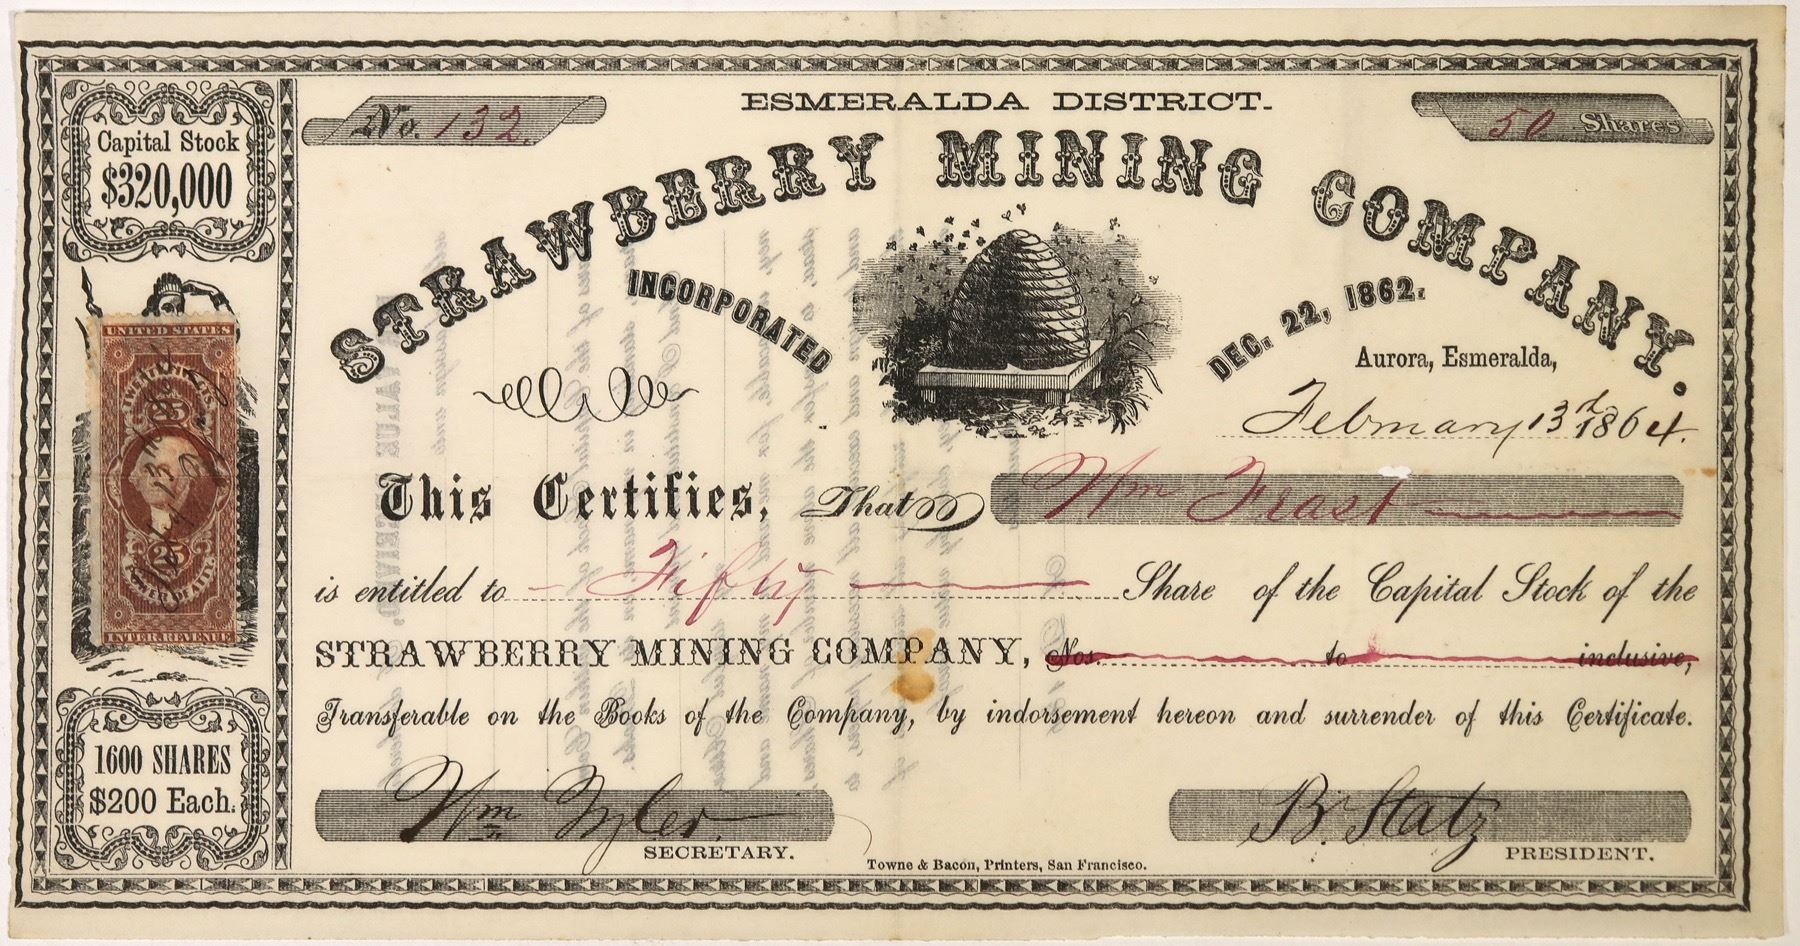 Capital Stock
$320,000
UNITED STATES
25
25
POWER OF ATT'Y
INTER. REVENUE
1600 SHARES
$200 Each.
No. 132.
ESMERALDA DISTRICT.
50 Shares
STRAWBERRY MINING COMPANY.
INCORPORATED DEC. 22, 1862.
Aurora, Esmeralda,
February 13th 1864.
This Certifies, That Wm Frast
is entitled to Fifty Share of the Capital Stock of the
STRAWBERRY MINING COMPANY, Nos. to inclusive,
Transferable on the Books of the Company, by indorsement hereon and surrender of this Certificate.
Wm Tyler.
SECRETARY.
B. Statz
PRESIDENT.
Towne & Bacon, Printers, San Francisco.